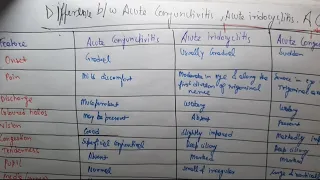 Difference b/w Acute Conjunctivitis, Acute iridocyclitis, A
Feature Acute Conjunctivitis Acute iridocyclitis Acute Con
Onset Gradual Usually Gradual Sudden
Pain Mild discomfort Moderate in eye & along the first division of trigeminal nerve Severe in eye
Discharge Mucopurulent Watery Watery
Coloured halos May be present Absent Present
Vision Good Slightly impaired Markedly
Congestion Superficial conjunctival Deep ciliary Deep ciliary
Tenderness Absent Marked Marked
Pupil Normal Small & irregular